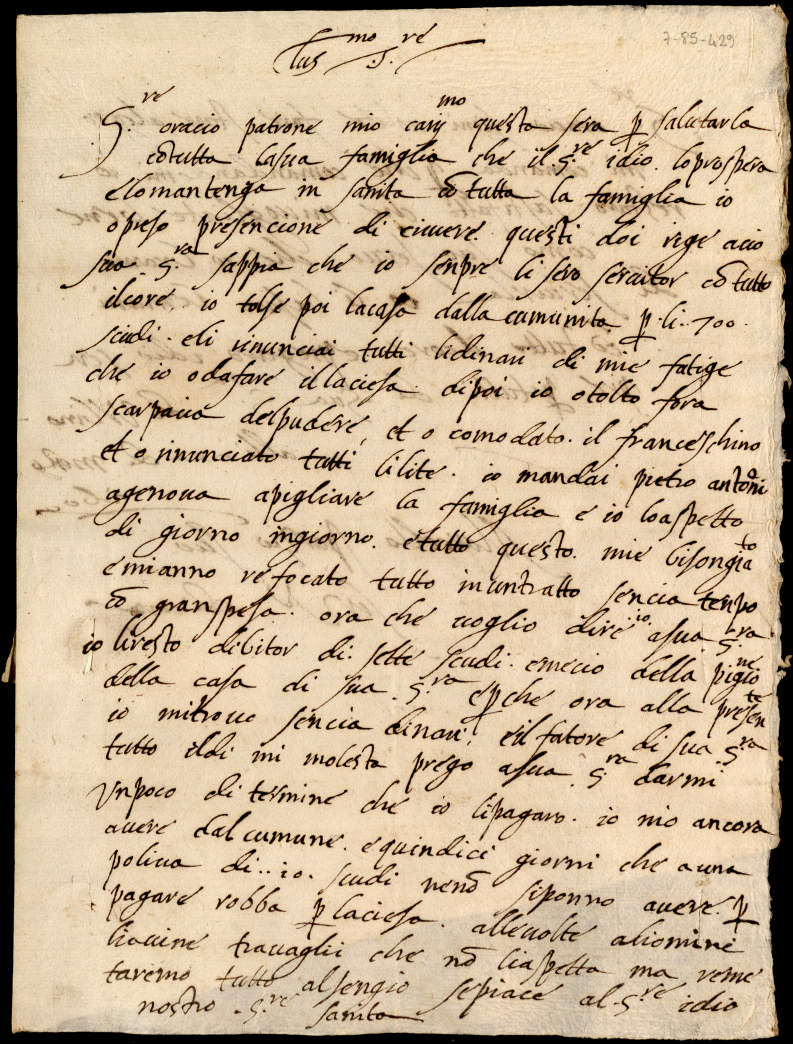 7-85-429
Ill.mo S.re
S.re oracio patrone mio cariss.mo questa sera p salutarla
cō tutta la sua famiglia che il S.re idio lo prospera
e lo mantenga in sanita cō tutta la famiglia io
o preso presencione di civere questi doi rige acio
sua S.ra sappia che io senpre li sero servitor cō tutto
il core. io tolse poi la casa dalla cumunita p li. 700.
scudi. e li rinunciai tutti li dinari di mie fatige
che io o da fare il la ciesa. dipoi io o tolto fora
del pudere, et o comodato. il franceschino
et o rinunciato tutti li lite. io mandai pietro antoni
a genova a pigliare la famiglia e io lo aspetto
di giorno in giorno. e tutto questo mie bisongiato
e mi anno tutto in un tratto sencia tenpo
cō gran spesa. ora che voglio dire io. a sua S.ra
io li resto dibitor di sette scudi. e mecio della pigione
della casa di sua S.ra e p che ora alla presente
io mi trovo sencia dinari, e il fatore di sua S.ra
tutto il di mi molesta prego a sua S.ra darmi
un poco di termine che io li pagaro. io nio ancora
avere dal cumune. e quindici giorni che a una
poliza di .. 10. scudi ne nō si ponno avere. p
pagare robba p la ciesa. alle volte a li omini
li avine travaglii che nō li aspetta ma reme
taremo tutto al sengio se piace al S.re idio
nostro S.re sanita